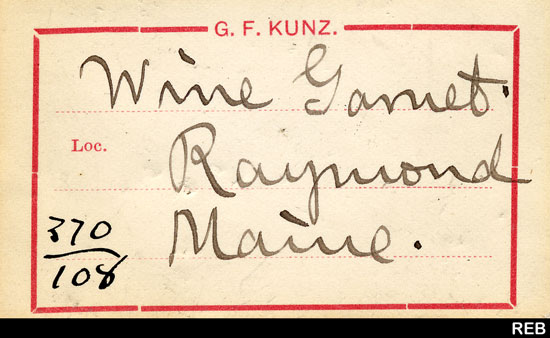 G. F. KUNZ.
Wine Garnet.
Loc.
Raymond
Maine.
370
108
REB